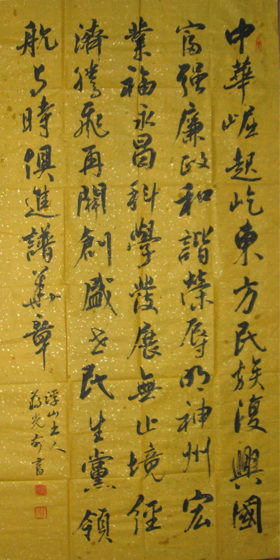 中華崛起屹東方民族復興國
富强廉政和諧榮辱明神州宏
業福永昌科學發展無止境經
濟騰飛再開創盛世民生黨領
航與時俱進譜華章
浮山主人
蔣光前書